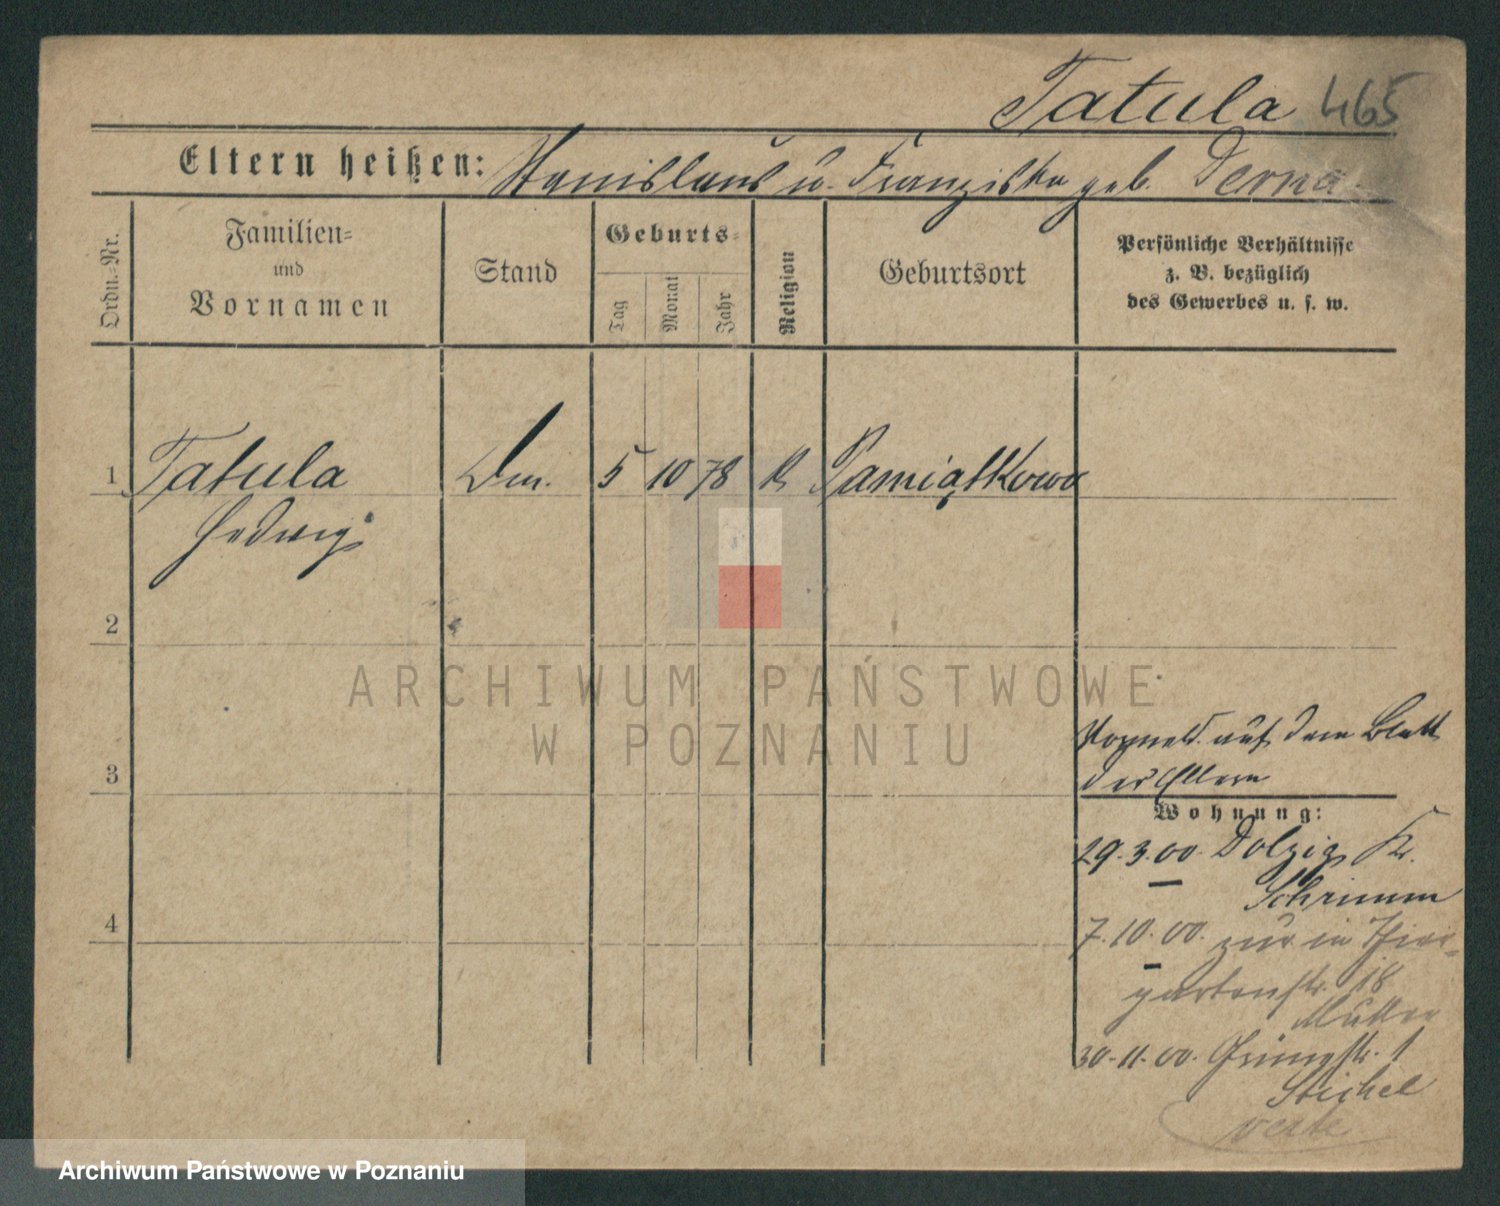 Tatula 465
Eltern heißen: Stanislaus u. Franziska geb. Derna
Ordn.-Nr.
Familien-
und
Vornamen
Stand
Geburts-
Tag
Monat
Jahr
Religion
Geburtsort
Persönliche Verhältnisse
z. B. bezüglich
des Gewerbes u. s. w.
1 Tatula Dm. 5 10 78 K Pamiątkowo
Hedwig
2
ARCHIWUM PAŃSTWOWE
W POZNANIU
3
auf dem Blatt
der Eltern
Wohnung:
29.3.00. Dolzig Kr.
Schrimm
4
7.10.00. zur. in Thier-
gartenstr. 18
Mutter
30.11.00. 1
Stichel
verte
Archiwum Państwowe w Poznaniu